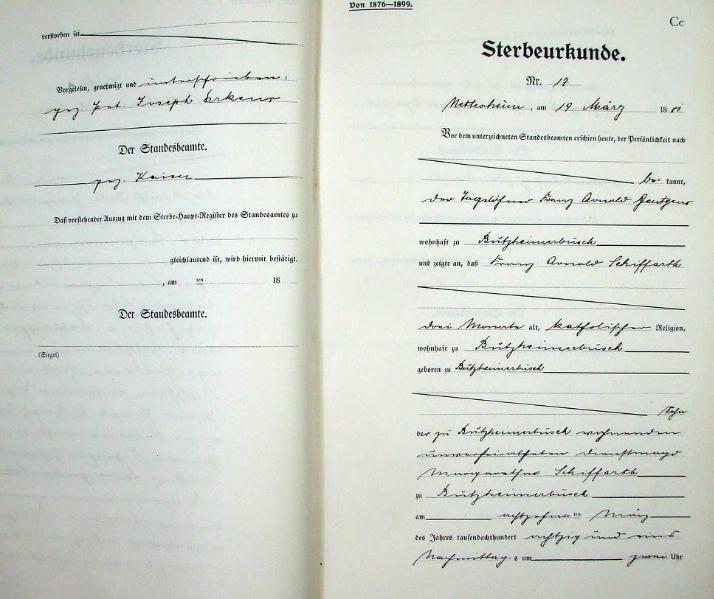 verstorben sei
Vorgelesen, genehmigt und unterschrieben:
gez. Joseph Erkens
Der Standesbeamte.
gez. Kaiser
Daß vorstehender Auszug mit dem Sterbe-Haupt-Register des Standesamtes zu
gleichlautend ist, wird hiermit bestätigt.
, am ten 18
Der Standesbeamte.
(Siegel)
Von 1876—1899.
Cc
Sterbeurkunde.
Nr. 17
am 19 März 1881
Vor dem unterzeichneten Standesbeamten erschien heute, der Persönlichkeit nach
be kannt,
der Tagelöhner Franz Arnold
wohnhaft zu Bützheimerbusch
und zeigte an, daß Franz Arnold Schiffarth
drei Monate alt, katholischer Religion,
wohnhaft zu Bützheimerbusch
geboren zu Bützheimerbusch
Sohn
der zu Bützheimerbusch wohnenden
unverheiratheten Dienstmagd
Margaretha Schiffarth
zu Bützheimerbusch
am achtzehn ten März
des Jahres tausendachthundert achtzig und eins
Nachmittags um zwei Uhr